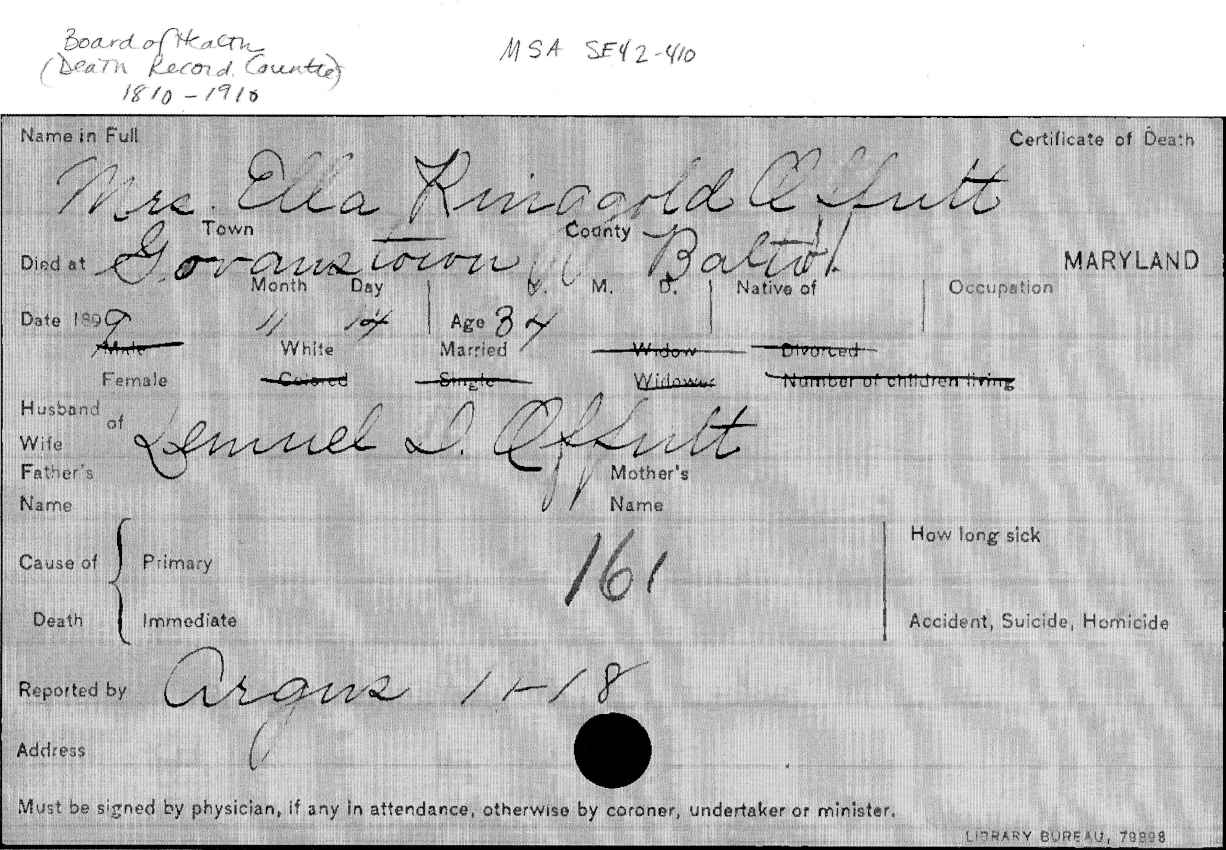 Board of Health
(Death Record. Counties)
1810-1910
MSA SE42-410
Name in Full
Certificate of Death
Mrs. Ella Ringgold Offutt
Town County
Died at Govanstown Balto. MARYLAND
Month Day Y. M. D. Native of Occupation
Date 1899 11 14 Age 34
Male White Married Widow Divorced
Female Colored Single Widower Number of children living
Husband
of
Wife
Lemuel D. Offutt
Father's Mother's
Name Name
161
How long sick
Cause of Primary
Death Immediate Accident, Suicide, Homicide
Reported by Argus 11-18
Address
Must be signed by physician, if any in attendance, otherwise by coroner, undertaker or minister.
LIBRARY BUREAU, 79898